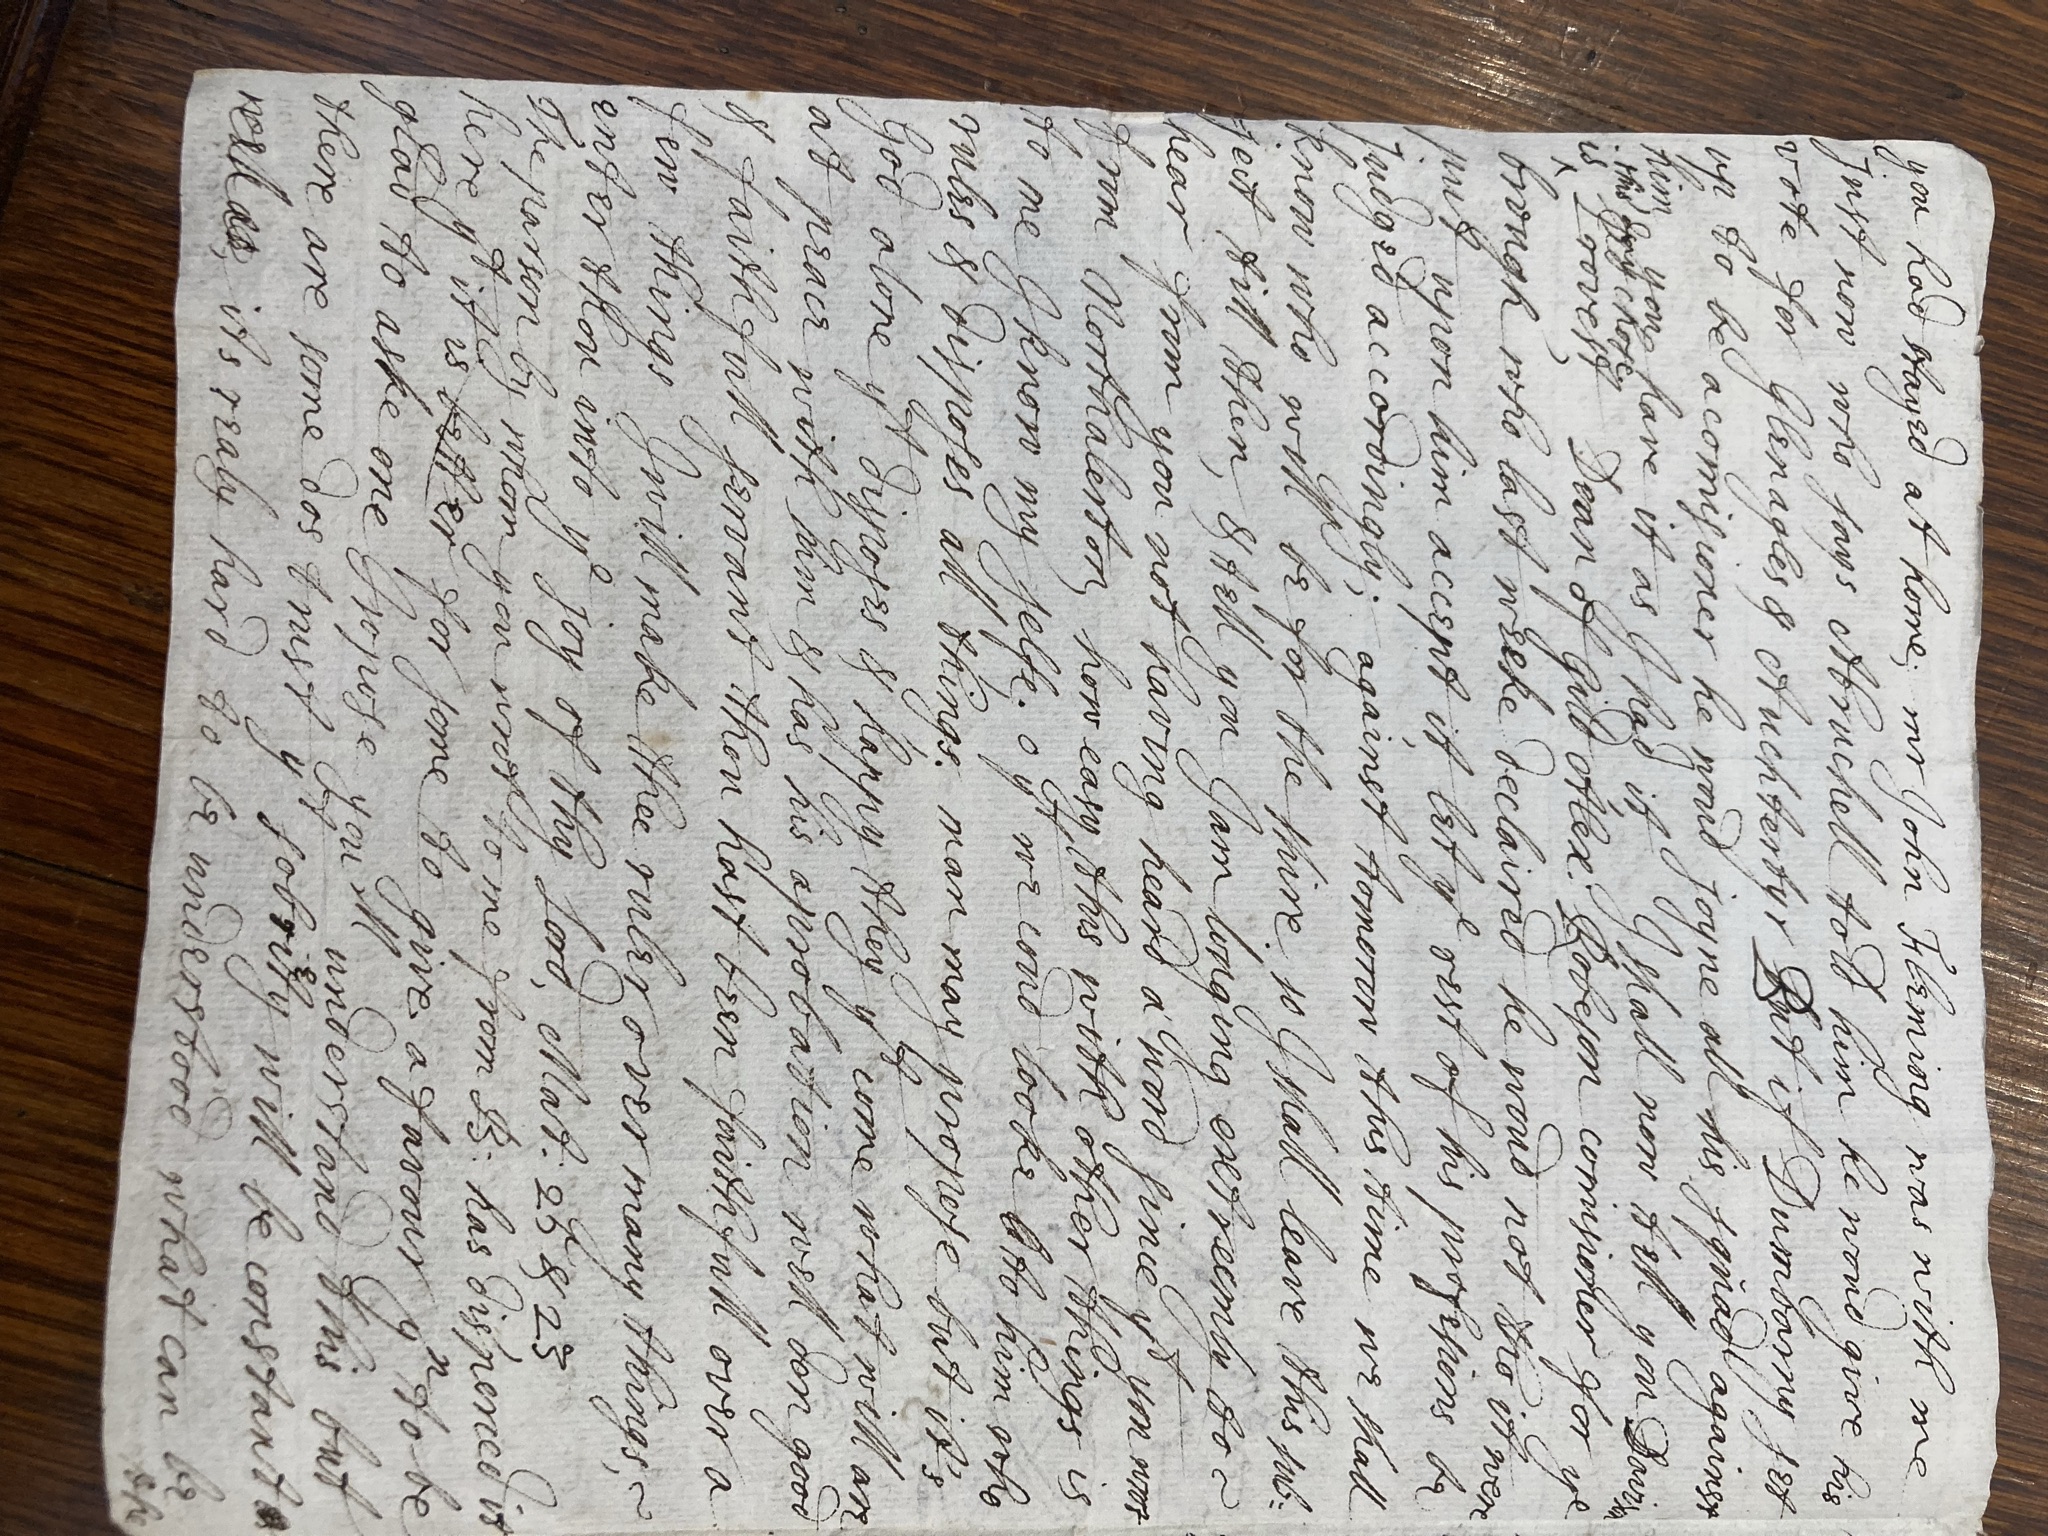 you had stayed at home; mr John Fleming was with me
just now who says Abruchell told him he woud give his
vote for Glenagles & Auchtertyr But if Dumbarny set
up to be a comisioner he woud joyne all his squad against
him, you have it as I had it, I shall now tell you Davison
this day chose
is ^ Provest, Dean of Gild Alex: Robeson comisioner for ye
brough who last weeke declaired he woud not tho it were
put upon him accept it, let ye rest of his profesions be
judged accordingly; against tomorow this time we shall
know who will be for the shire so I shall leave this sub=
ject till then, & tell you I am longing extreemly to ~
hear from you not having heard a word since yt you wrot
from Northalerton, how easy this with other things is
to me I know my selfe; o yt we coud looke to him who
rules & disposes all things; man may propose but it's
God alone yt disposes & happy they yt come what will are
at peace with him & has his aprobation well don good
& faithfull servant thou hast been faithfull over a
few things I will make thee ruler over many things, ~
enter thou into ye joy of thy Lord, Mat: 25 & 23
The parson by whom you wrot to me from B: has disperced it
here yt it is better for some to give a favour yn to be
glad to aske one I supose you'll understand this but
there are some dos trust yt sobriety will be constant
its realy hard to be understood what can be
the